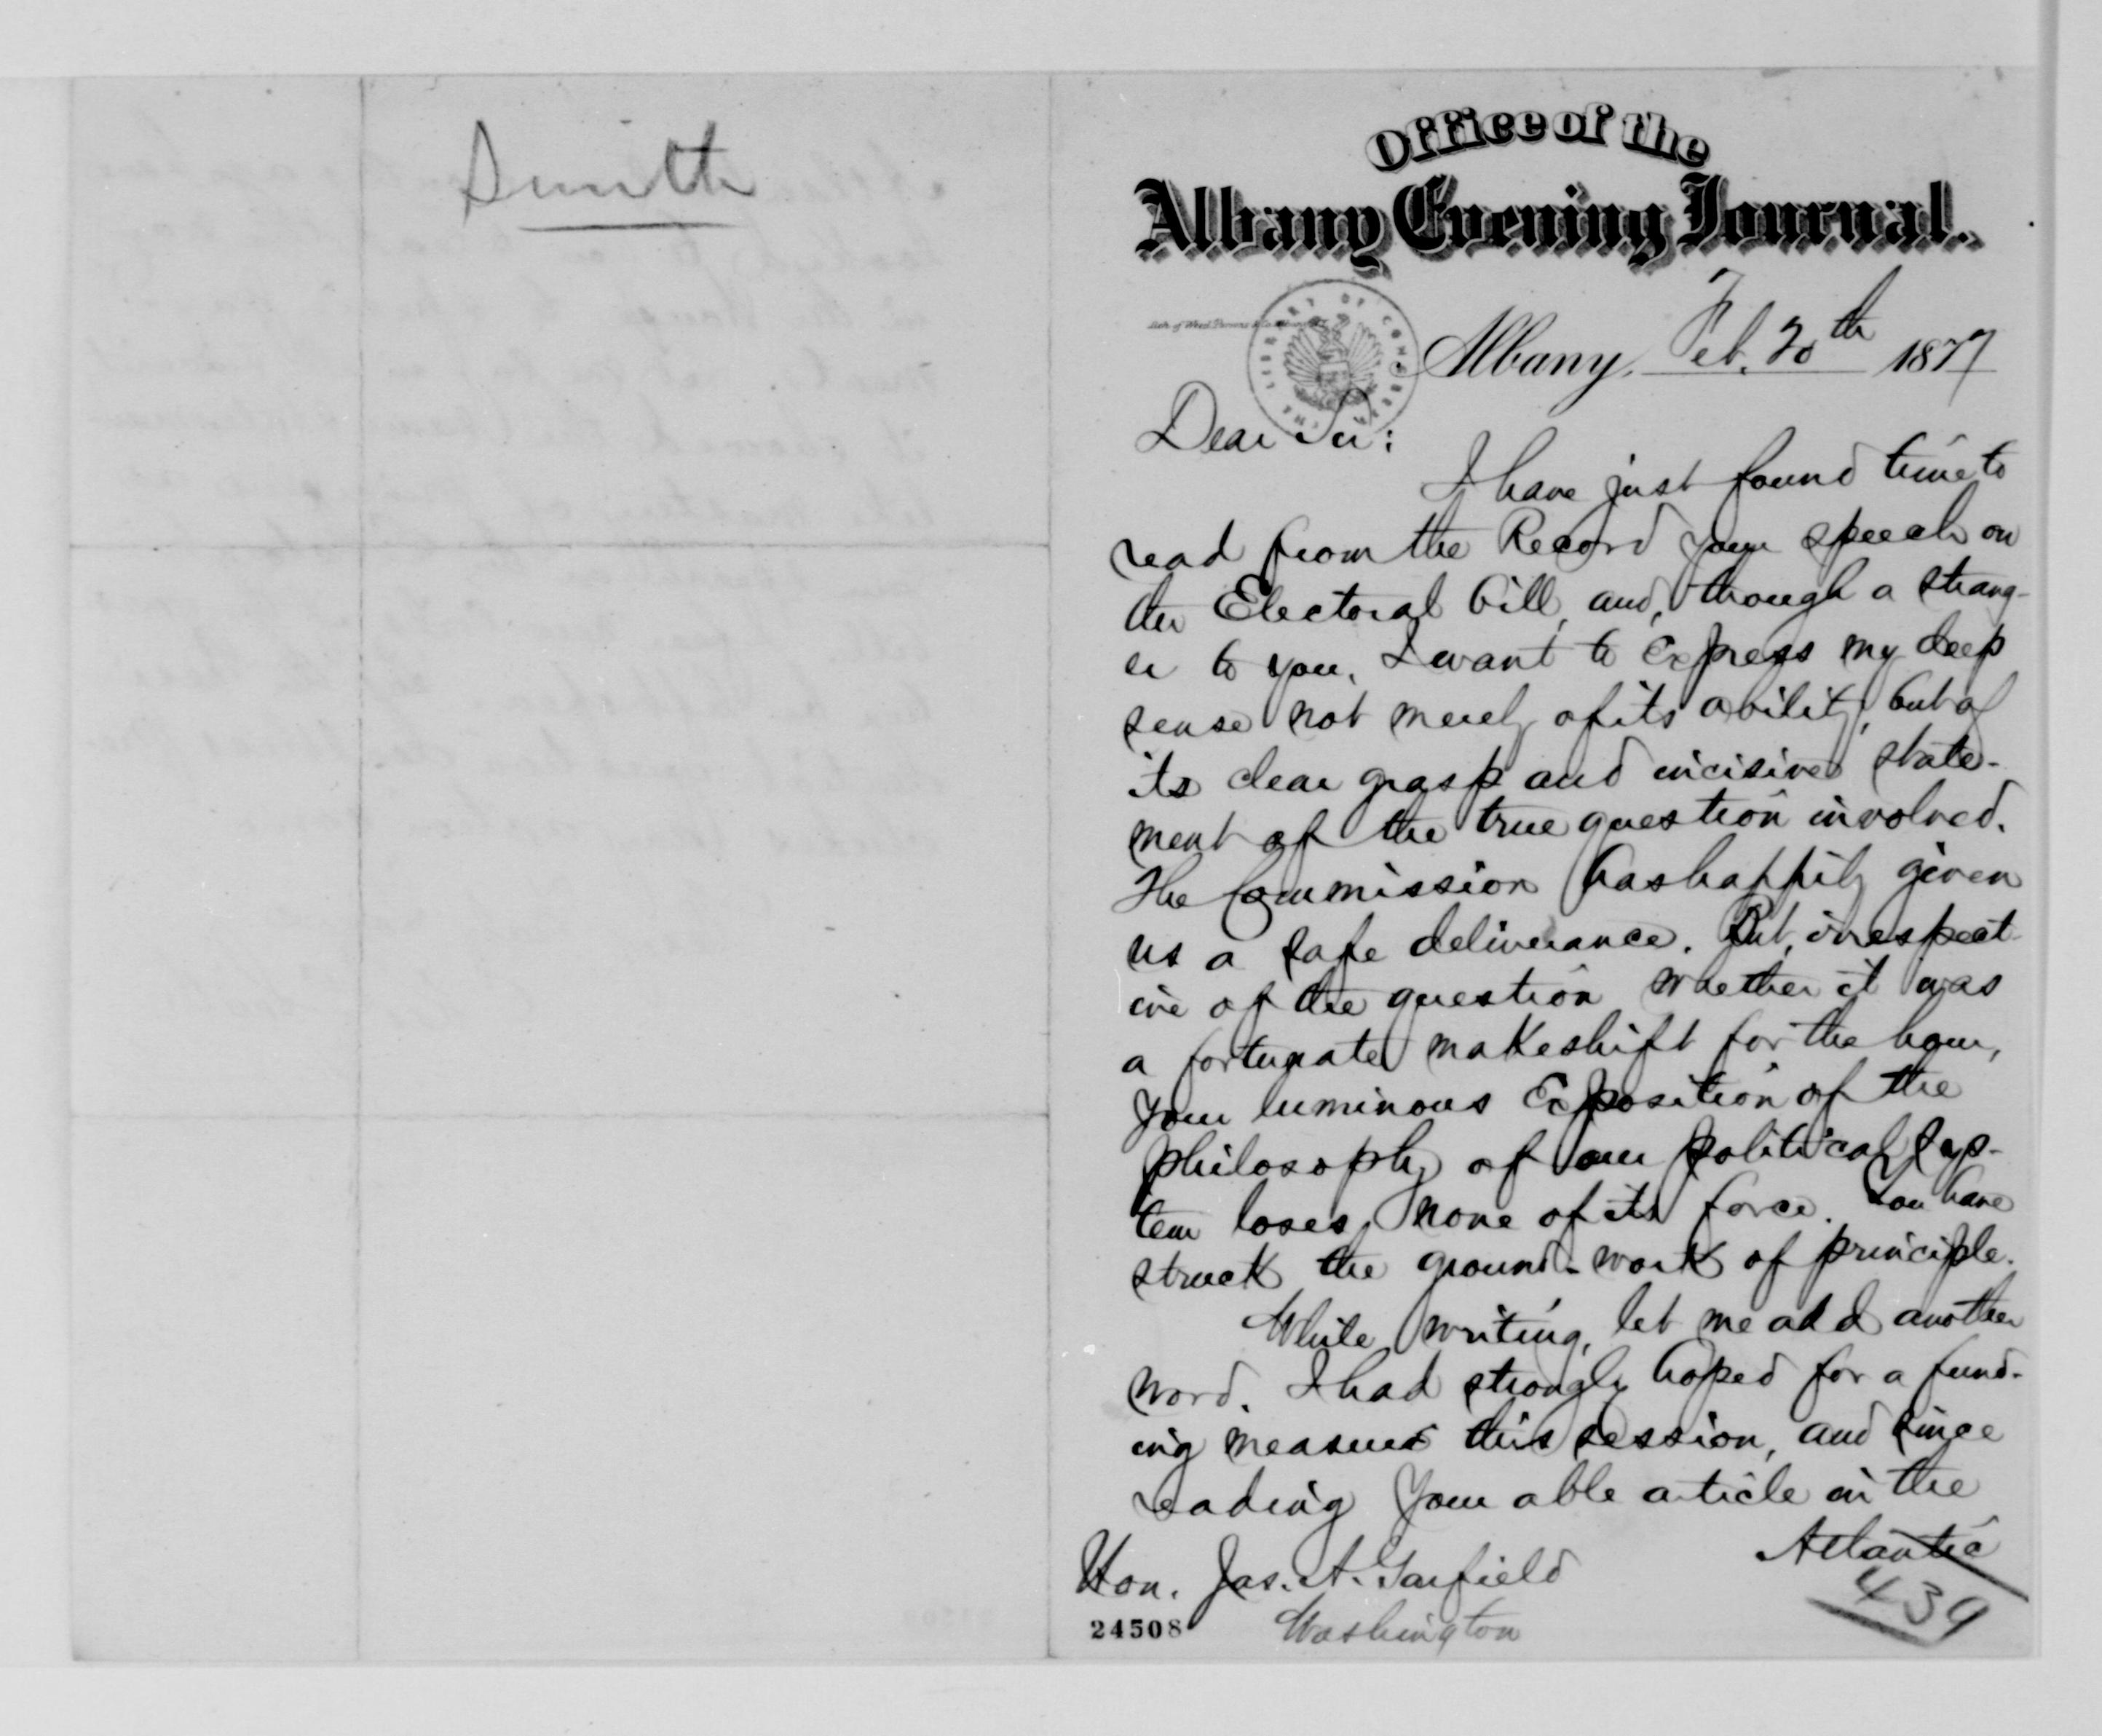 Smith
Office of the
Albany Evening Journal.
THE LIBRARY OF CONGRESS
Albany, Feb. 20th 1877
Dear Sir:
I have just found time to
read from the Record your speech on
the Electoral bill, and, though a strang-
er to you, I want to express my deep
sense not merely of its ability, but of
its clear grasp and incisive state-
ment of the true question involved.
The Commission has happily given
us a safe deliverance. But, irrespect-
ive of the question whether it was
a fortunate makeshift for the hour,
your luminous exposition of the
philosophy of our political sys-
tem loses none of its force. You have
struck the ground-work of principle.
While writing, let me add another
word. I had strongly hoped for a fund-
ing measure this session, and since
reading your able article in the
Atlantic
Hon. Jas. A. Garfield
Washington
439
24508